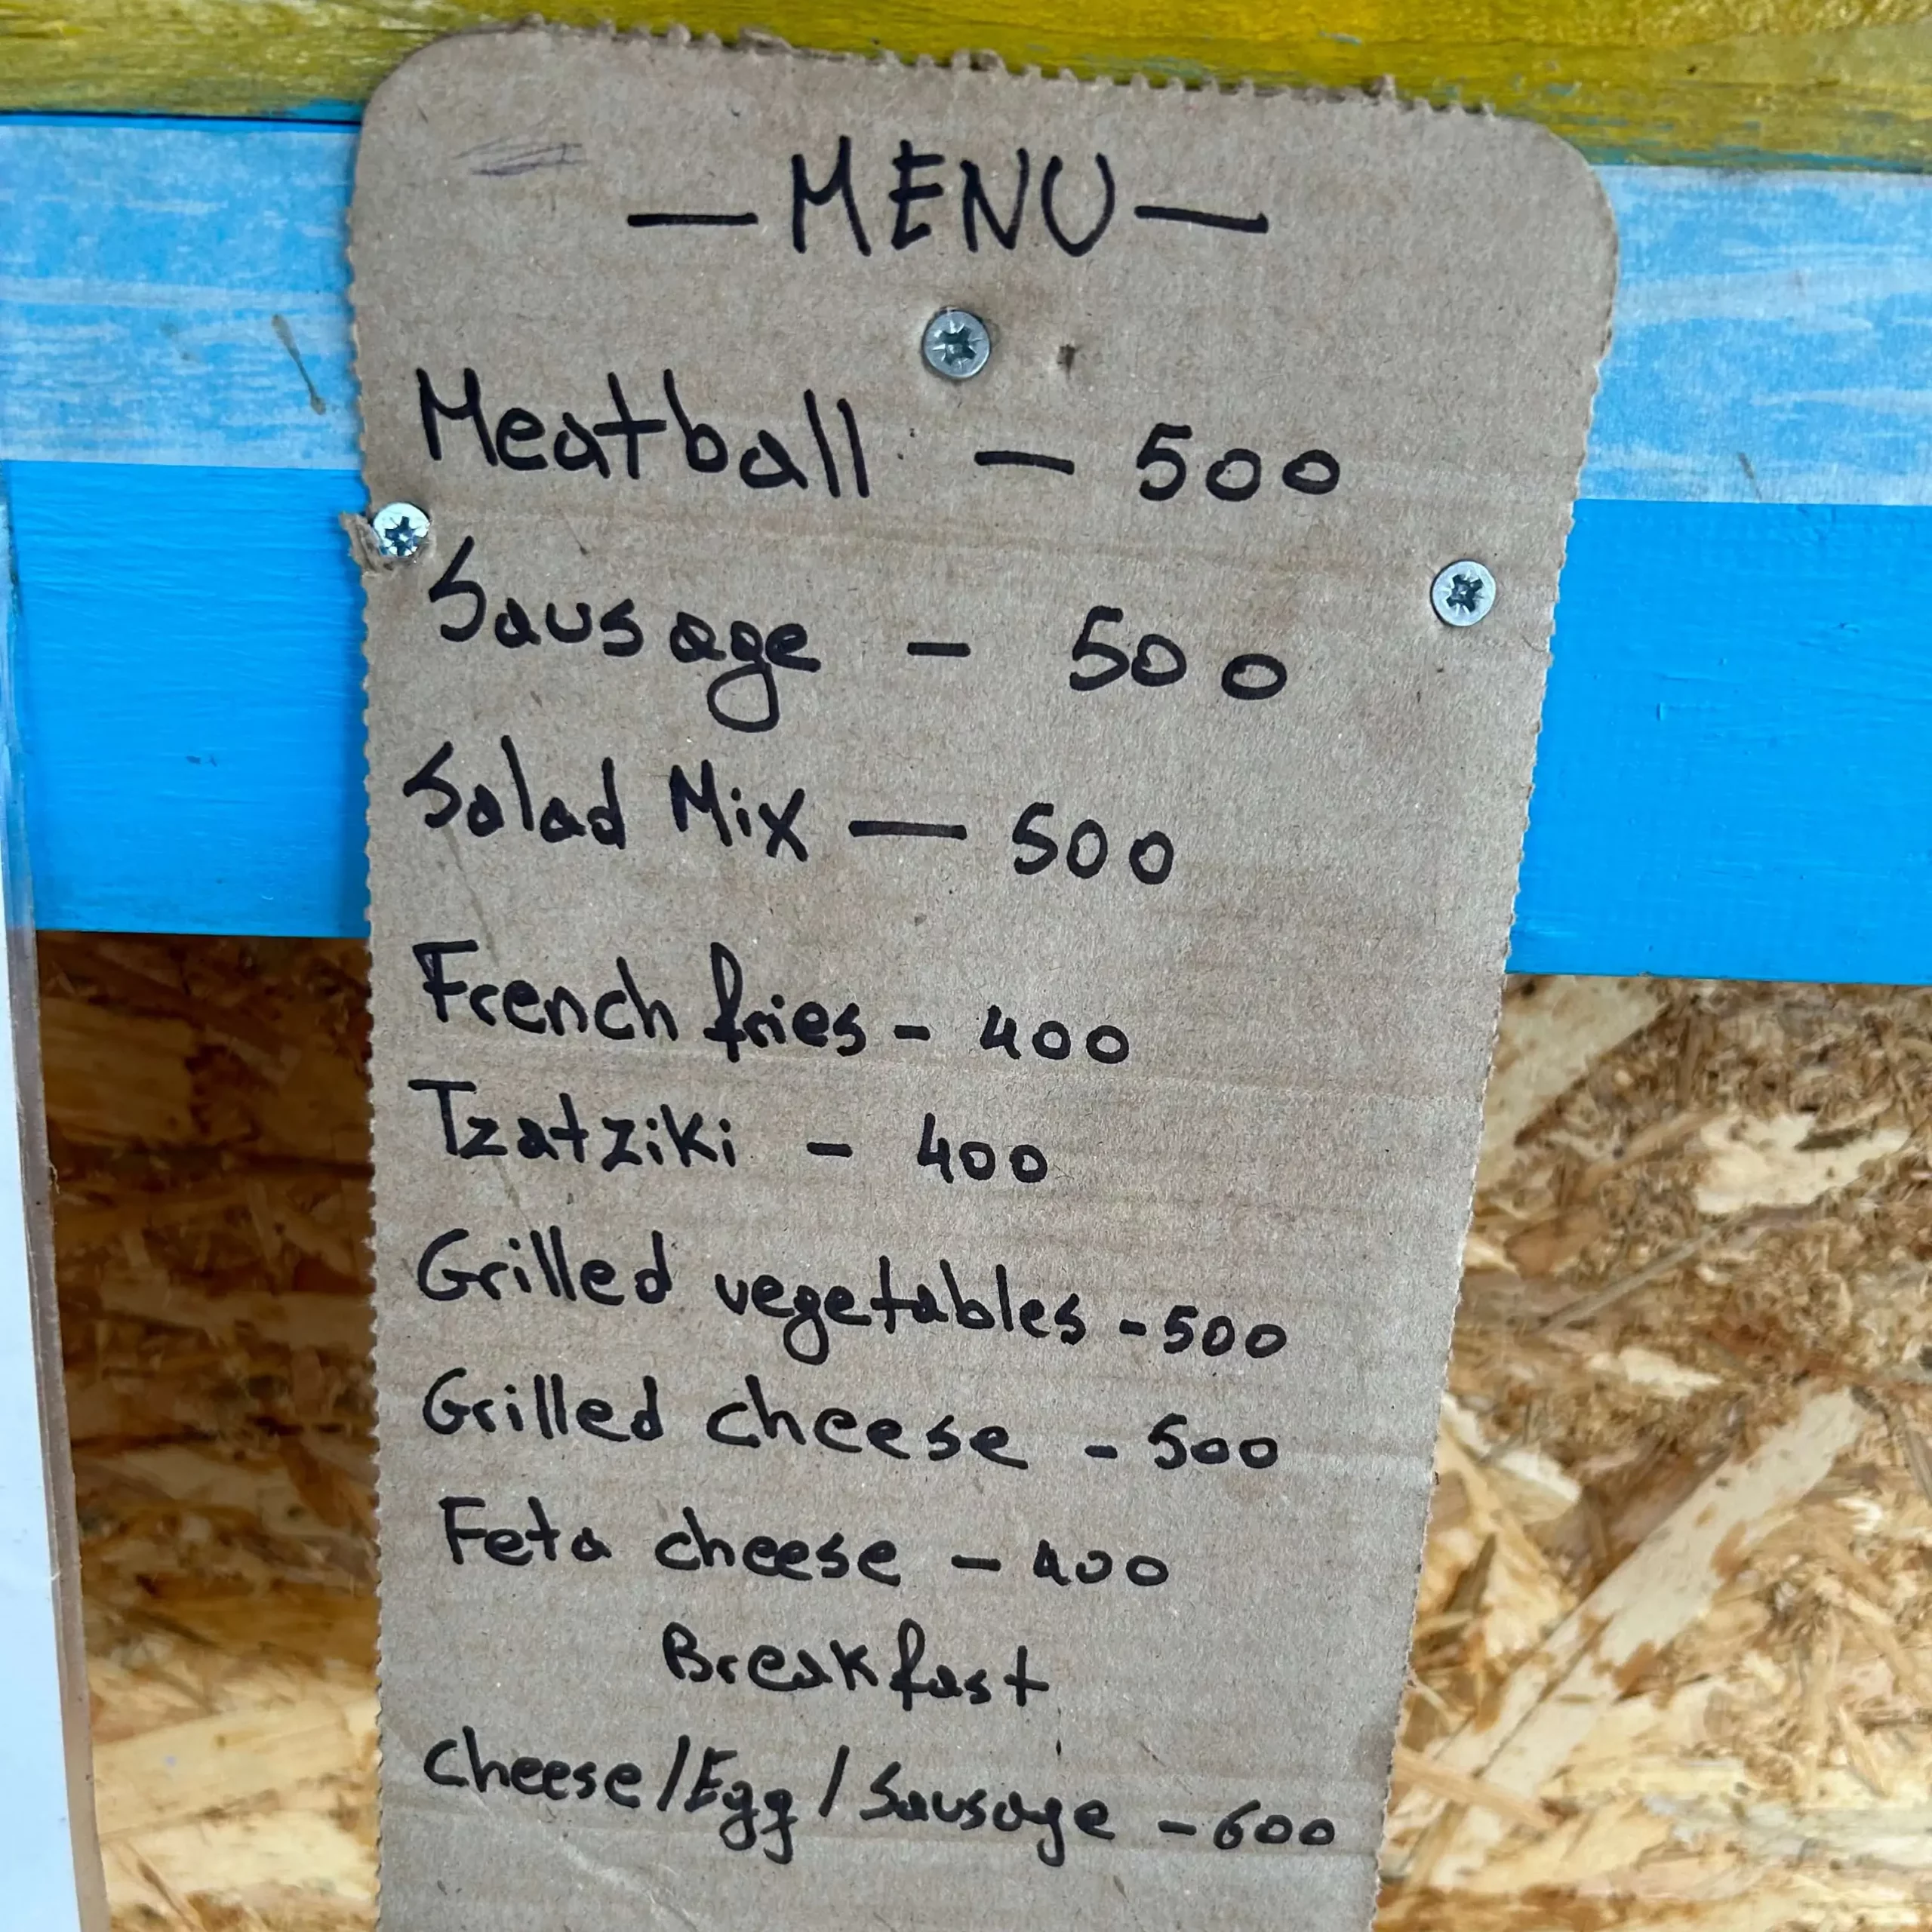 — MENU —
Meatball — 500
Sausage - 500
Salad Mix — 500
French fries - 400
Tzatziki - 400
Grilled vegetables - 500
Grilled cheese - 500
Feta cheese - 400
Breakfast
Cheese/Egg/Sausage - 600